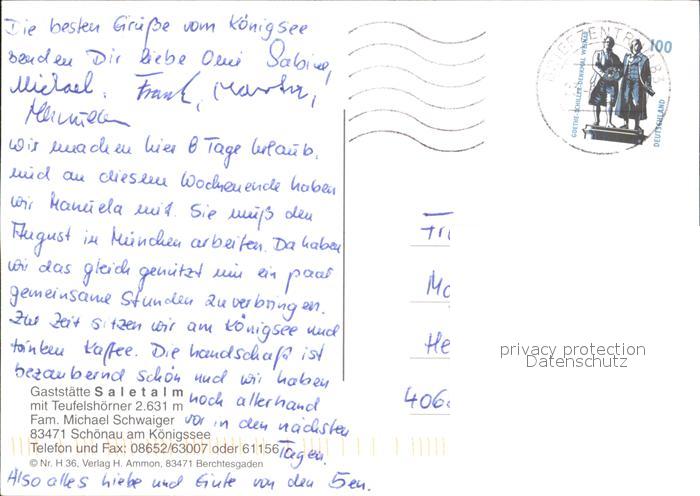 Die besten Grüße vom Königsee
senden Dir liebe Omi Sabine,
Michael, Frank, Martin,
Manuela
Wir machen hier 8 Tage Urlaub,
und an diesem Wochenende haben
wir Manuela mit. Sie muß den
August in München arbeiten. Da haben
wir das gleich genützt um ein paar
gemeinsame Stunden zu verbringen.
Zur Zeit sitzen wir am Königsee und
trinken Kaffee. Die Landschaft ist
bezaubernd schön und wir haben
noch allerhand
vor in den nächsten
Tagen.
Also alles Liebe und Gute von den 5en.
Gaststätte Saletalm
mit Teufelshörner 2.631 m
Fam. Michael Schwaiger
83471 Schönau am Königssee
Telefon und Fax: 08652/63007 oder 61156
© Nr. H 36, Verlag H. Ammon, 83471 Berchtesgaden
BRIEFZENTRUM 83
GOETHE-SCHILLER-DENKMAL WEIMAR
100
DEUTSCHLAND
He
406
privacy protection
Datenschutz